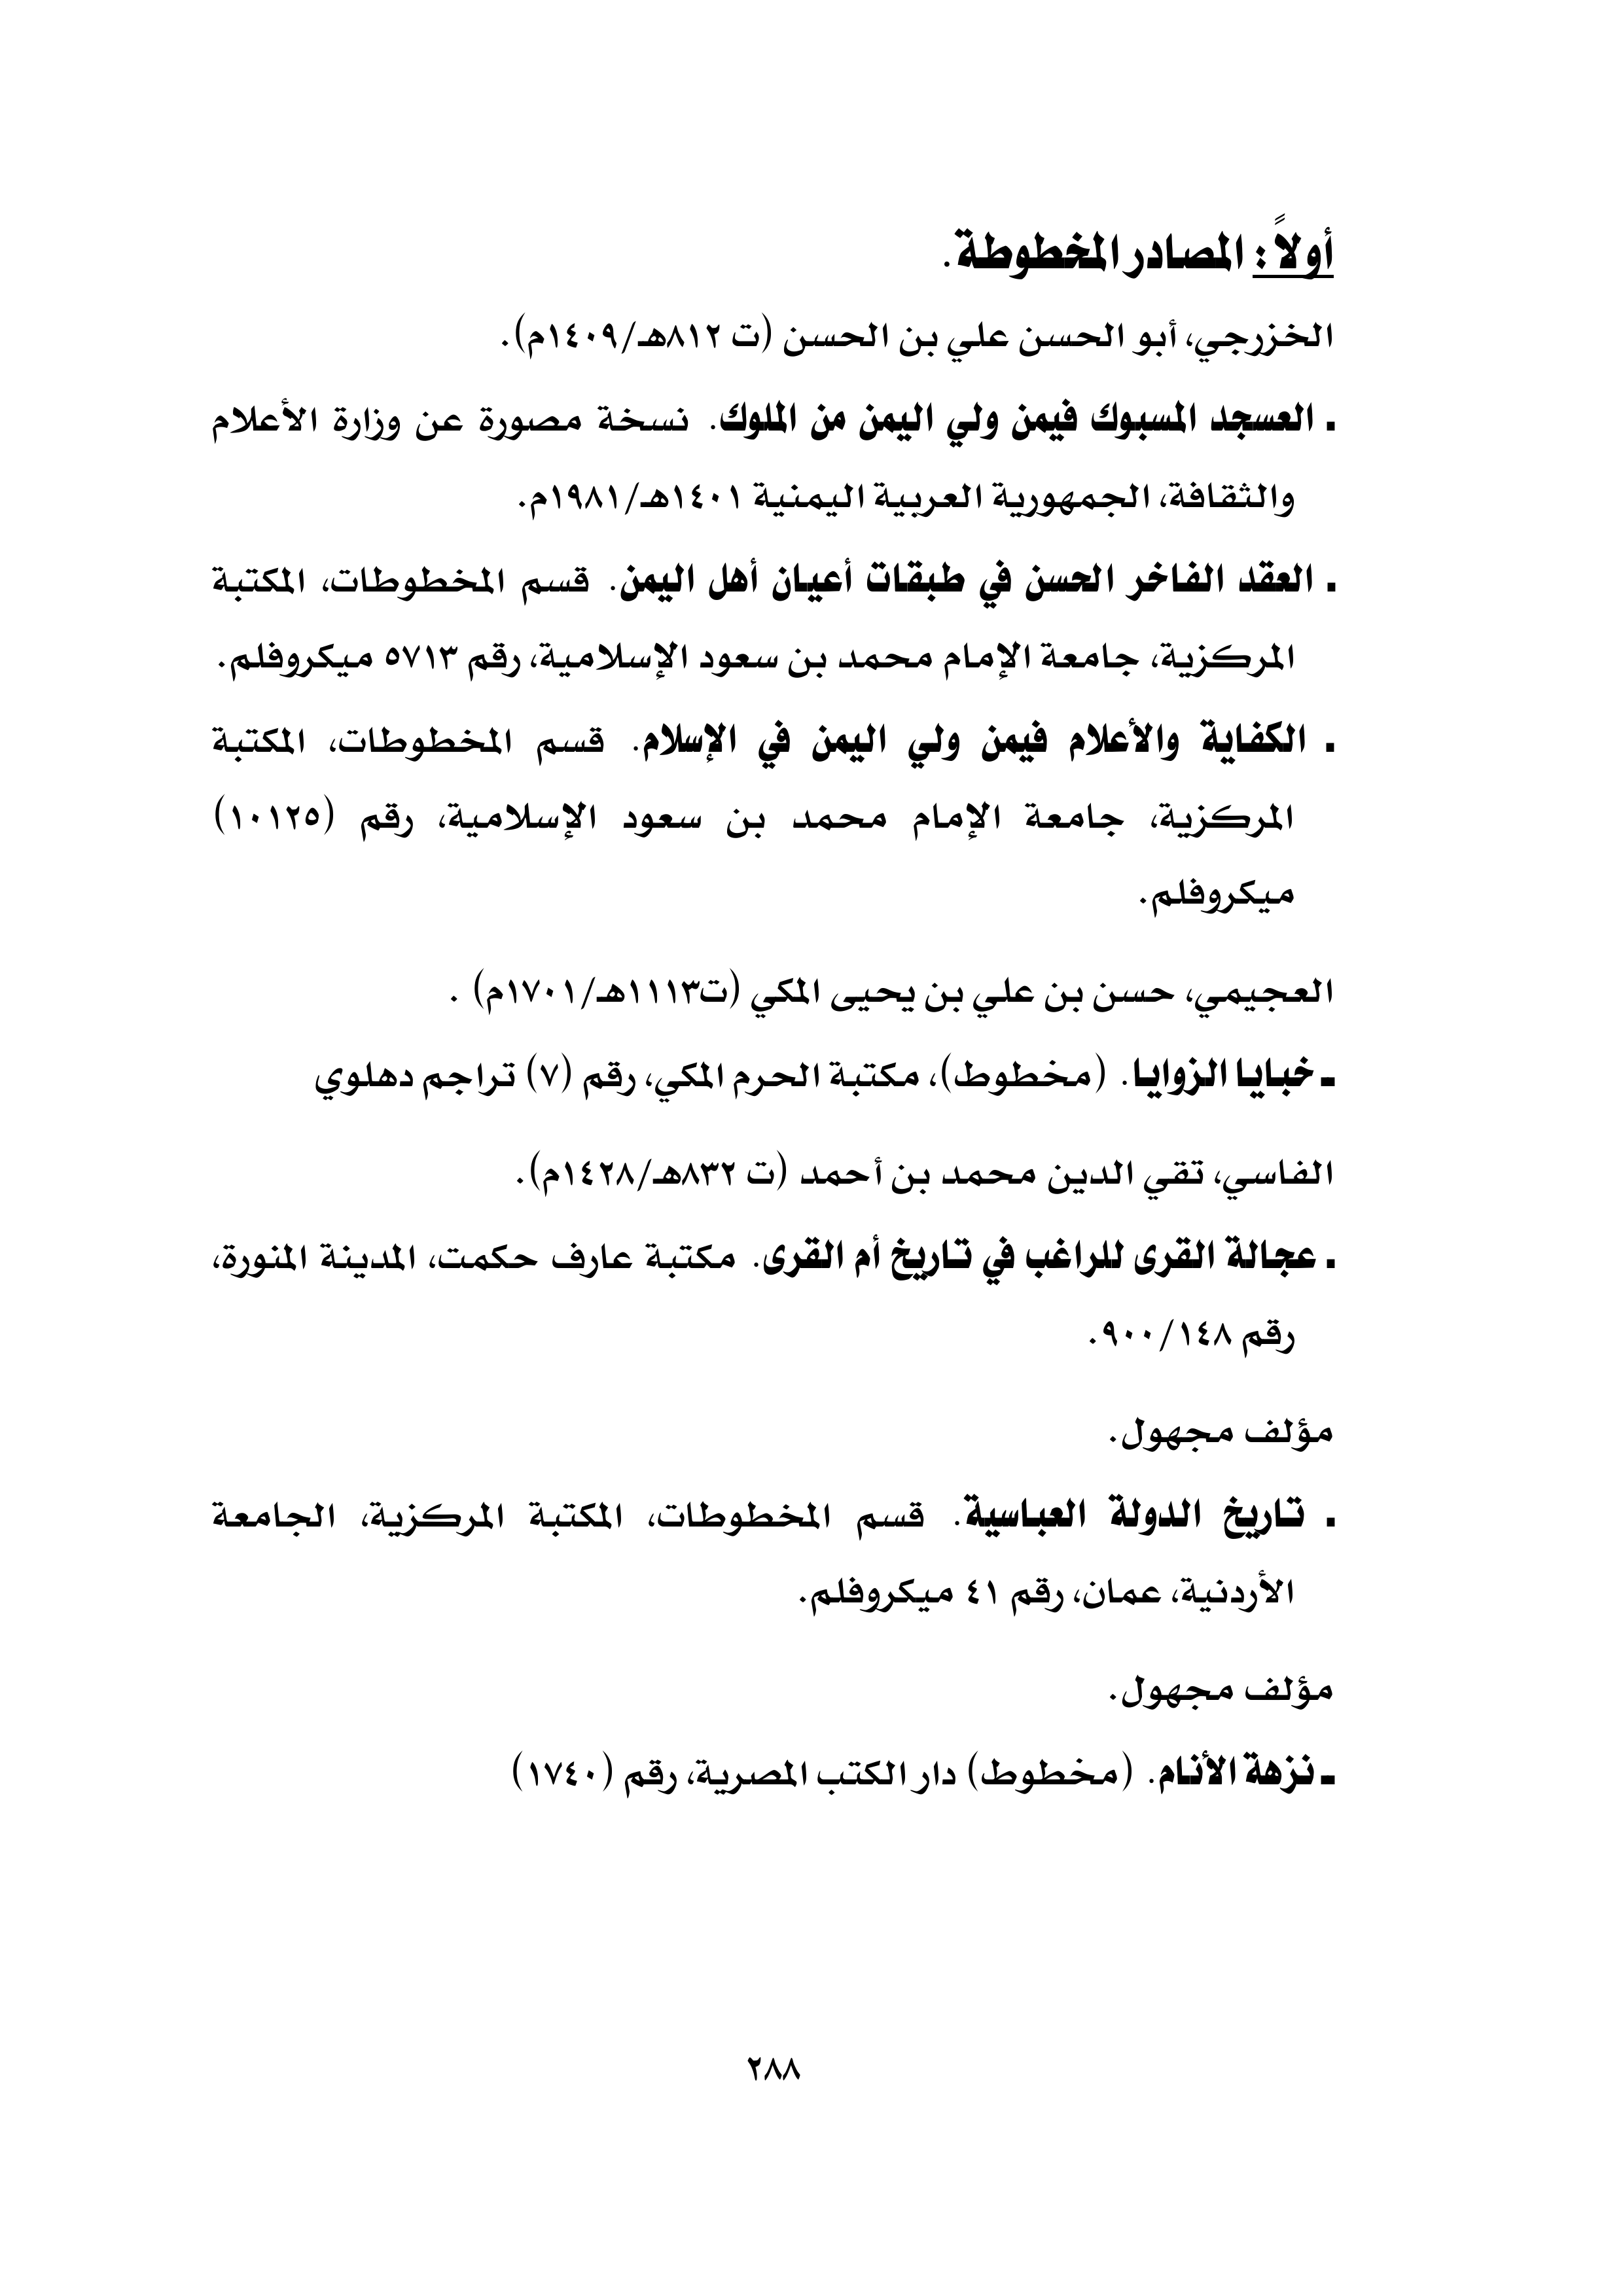 أولاً: المصادر المخطوطة.
الخزرجي، أبو الحسن علي بن الحسن (ت ٨١٢هـ/١٤٠٩م).
. العسجد المسبوك فيمن ولي اليمن من الملوك. نسخة مصورة عن وزارة الأعلام
والثقافة، الجمهورية العربية اليمنية ١٤٠١هـ/١٩٨١م.
. العقد الفاخر الحسن في طبقات أعيان أهل اليمن. قسم المخطوطات، المكتبة
المركزية، جامعة الإمام محمد بن سعود الإسلامية، رقم ٥٧١٣ ميكروفلم.
. الكفاية والأعلام فيمن ولي اليمن في الإسلام. قسم المخطوطات، المكتبة
المركزية، جامعة الإمام محمد بن سعود الإسلامية، رقم (١٠١٢٥)
ميكروفلم.
العجيمي، حسن بن علي بن يحيى المكي (ت١١١٣هـ/١٧٠١م) .
ـ خبايا الزوايا. (مخطوط)، مكتبة الحرم المكي، رقم (٧) تراجم دهلوي
الفاسي، تقي الدين محمد بن أحمد (ت ٨٣٢هـ/١٤٢٨م).
. عجالة القرى للراغب في تاريخ أم القرى. مكتبة عارف حكمت، المدينة المنورة،
رقم ٩٠٠/١٤٨.
مؤلف مجهول.
. تاريخ الدولة العباسية. قسم المخطوطات، المكتبة المركزية، الجامعة
الأردنية، عمان، رقم ٤١ ميكروفلم.
مؤلف مجهول.
ـ نزهة الأنام. (مخطوط) دار الكتب المصرية، رقم (١٧٤٠)
٢٨٨